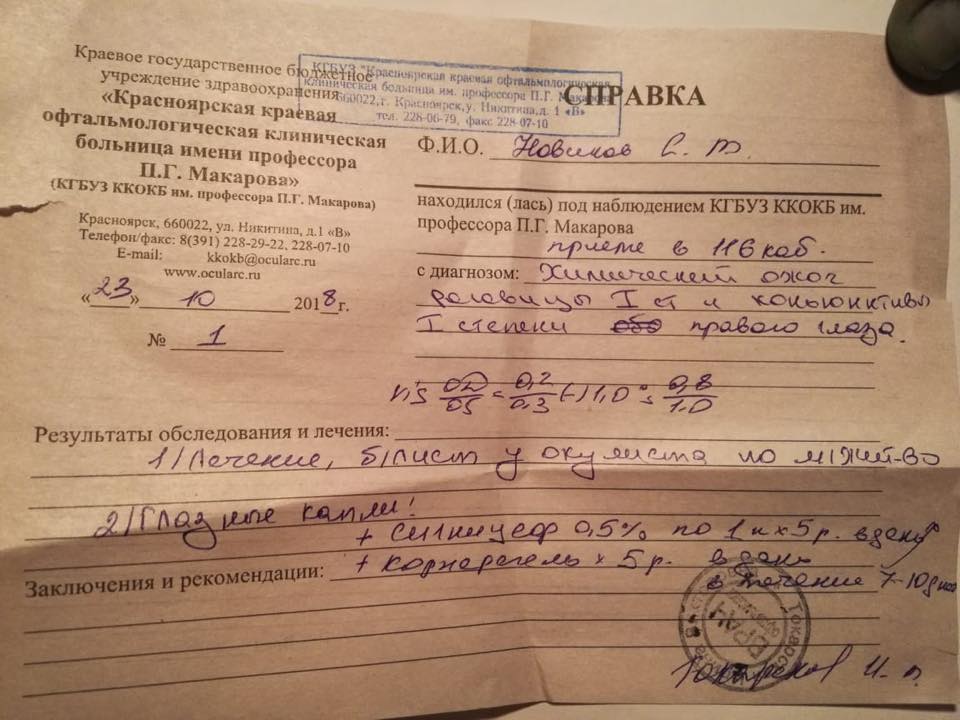 Краевое государственное бюджетное
учреждение здравоохранения
«Красноярская краевая
офтальмологическая клиническая
больница имени профессора
П.Г. Макарова»
(КГБУЗ ККОКБ им. профессора П.Г. Макарова)
Красноярск, 660022, ул. Никитина, д.1 «В»
Телефон/факс: 8(391) 228-29-22, 228-07-10
E-mail: kkokb@ocularc.ru
www.ocularc.ru
«23» 10 2018г.
№ 1
КГБУЗ "Красноярская краевая офтальмологическая
клиническая больница им. профессора П.Г. Макарова
660022, г. Красноярск, у. Никитина, д. 1 «В»
тел. 228-06-79, факс 228-07-10
СПРАВКА
Ф.И.О. Новиков С.
находился (лась) под наблюдением КГБУЗ ККОКБ им.
профессора П.Г. Макарова
приеме в 116 каб.
с диагнозом: Химический ожог
роговицы I ст и коньюнктивы
I степени правого глаза.
Vis OD/OS = 0,2/0,3 (-) 1,0 = 0,8/1,0
Результаты обследования и лечения:
1/Лечение, б/лист у окулиста по м/жит-во
2/Глазные капли!
+ сигницеф 0,5% по 1 к х 5 р. в день
Заключения и рекомендации: + корнерегель х 5 р. в день
в течение 7-10 дней
ВРАЧ